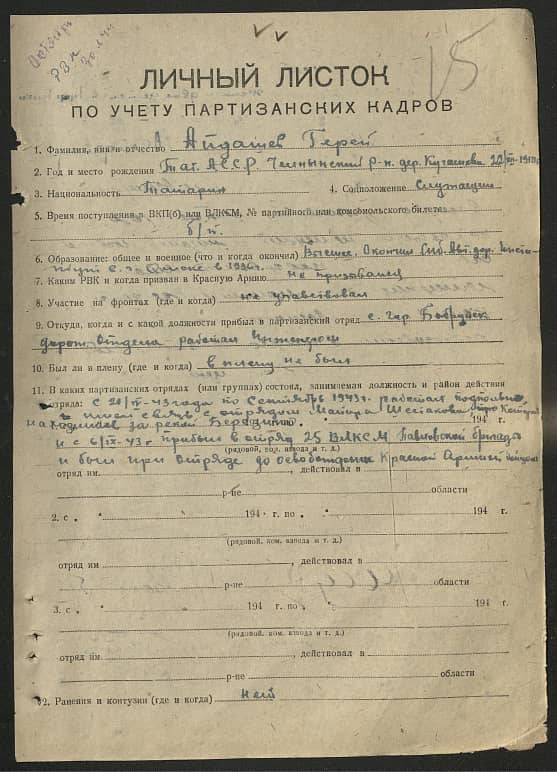 Октябрь
РВК
ЛИЧНЫЙ ЛИСТОК
ПО УЧЕТУ ПАРТИЗАНСКИХ КАДРОВ
1. Фамилия, имя и отчество Айдашев Герей
2. Год и место рождения Тат. АССР. Челнынский р-н. дер. Куташева
3. Национальность Татарин 4. Соцположение Служащий
5. Время поступления в ВКП(б) или ВЛКСМ, № партийного или комсомольского билета
б/п.
6. Образование: общее и военное (что и когда окончил) Высшее, Окончил Сиб. Авт. дор. Инсти-
тут в г. Омске в 1936 г.
7. Каким РВК и когда призван в Красную Армию не призывался
8. Участие на фронтах (где и когда) не участвовал
9. Откуда, когда и с какой должности прибыл в партизанский отряд с. гор. Бобруйск
дорож. отдела работал инженером
10. Был ли в плену (где и когда) в плену не был
11. В каких партизанских отрядах (или группах) состоял, занимаемая должность и район действия
отряда: с 20/ -43 года по Сентябрь 1943 г. работал подпольно
имел связь с отрядом Майора Шестакова
находился за рекой Березино. 194 г.
и с 6/IX-43 г. прибыл в отряд 25 ВЛКСМ Павловской бригады
(рядовой, ком. взвода и т. д.)
и был при отряде до освобождения Красной Армией
отряд им. действовал в
р-не области
2. с " " 194 г. по " 194 г.
(рядовой, ком. взвода и т. д.)
отряд им , действовал в
р-не области
3. с " " 194 г. по " 194 г.
(рядовой, ком. взвода и т. д.)
отряд им. , действовал в
р-не области
12. Ранения и контузии (где и когда) нет